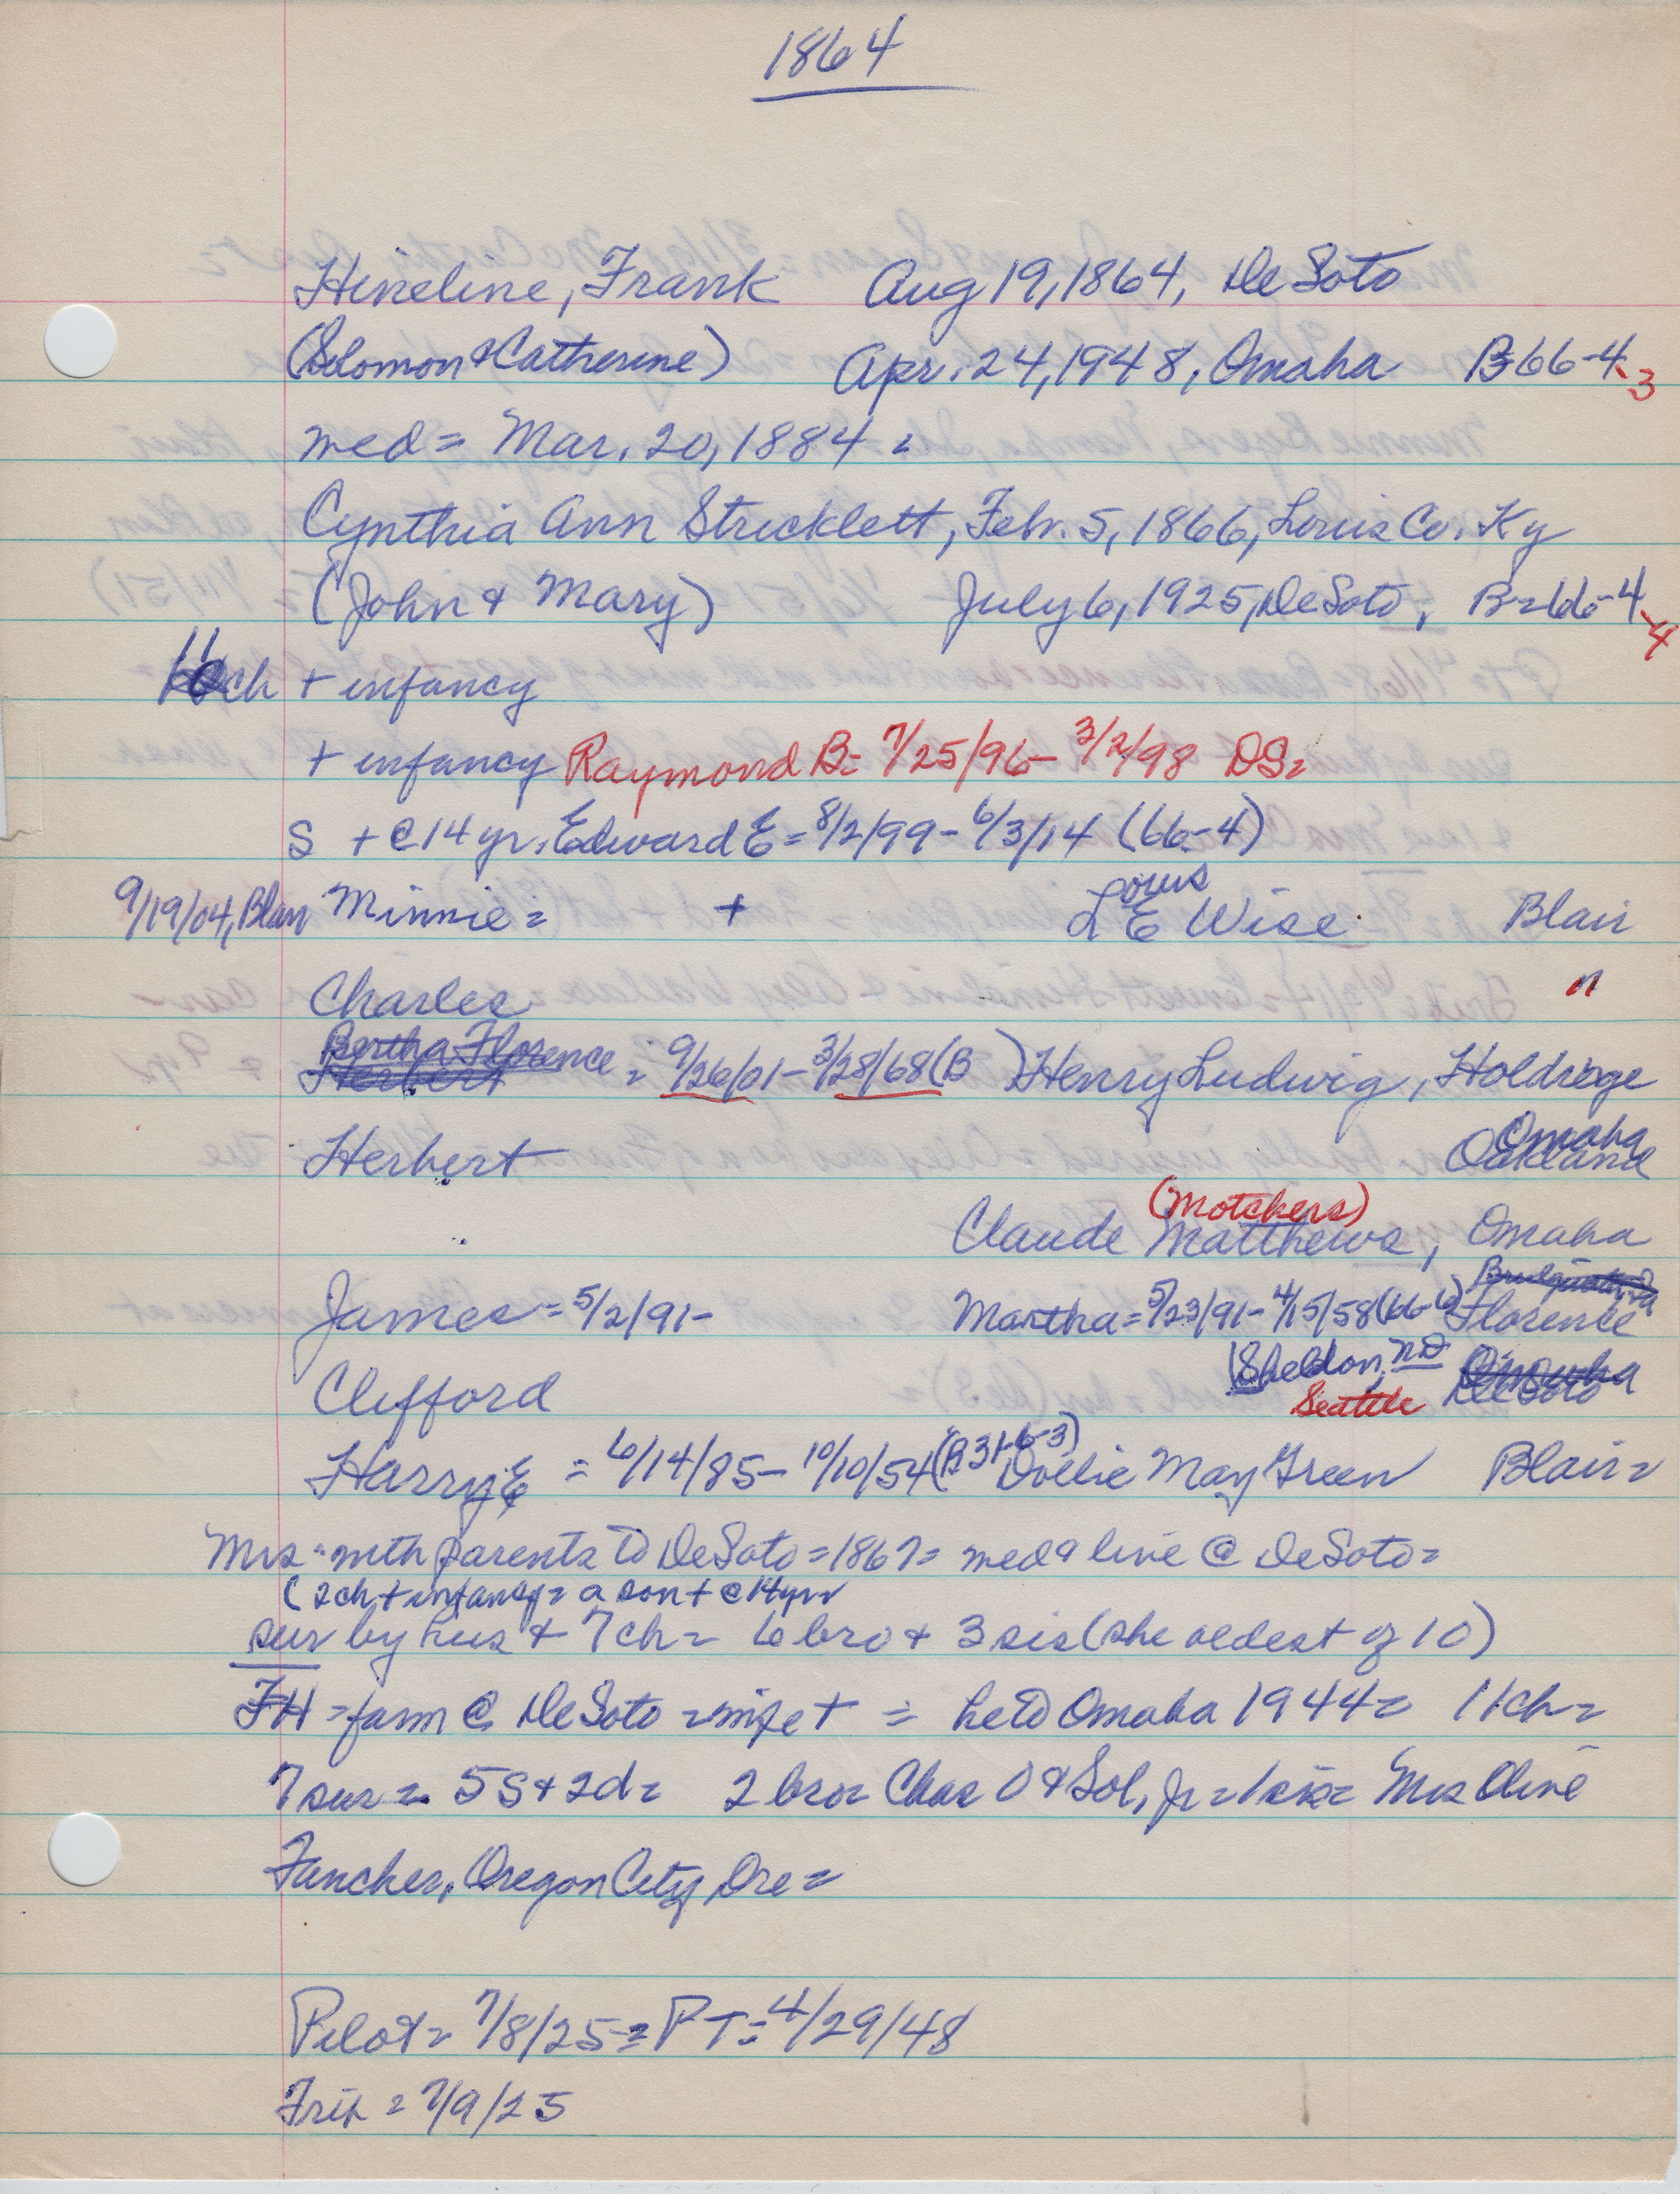 1864
Hineline, Frank Aug 19, 1864, De Soto
(Solomon & Catherine) Apr. 24, 1948, Omaha B-66-4-3
med = Mar. 20, 1884 =
Cynthia Ann Stricklett, Febr. 5, 1866, Louis Co. Ky
(John & Mary) July 6, 1925, DeSoto, B=66-4-4
11 ch + infancy
+ infancy Raymond B= 7/25/96 - 3/2/98 DS=
S + @ 14 yr. Edward E = 8/2/99 - 6/3/14 (66-4)
Louis
9/19/04, Blair Minnie = + L E Wise Blair
Charles "
Bertha Florence
Herbert = 9/26/01 - 3/28/68 (B ) Henry Ludwig, Holdrege
Omaha
Herbert Oakland
(Motchers)
Claude Matthews, Omaha
James = 5/2/91- Martha = 5/23/91 - 4/15/58 (66-6) Florence
Sheldon, ND Omaha
Clifford Seattle DeSoto
Harry E = 6/14/85 - 10/10/54 (B 31-6-3) Dollie May Green Blair =
Mrs = with parents to DeSoto = 1867 = med & live @ DeSoto =
(2 ch + infancy = a son + @ 14 yr =
sur by hus & 7 ch = 6 bro & 3 sis (she oldest of 10)
FH = farm @ DeSoto = wife + = he to Omaha 1944 = 11 ch =
7 sur = 5 S & 2 d = 2 bro = Chas O & Sol, Jr = 1 sis = Mrs Olive
Fancher, Oregon City, Ore =
Pilot = 7/8/25 = PT = 4/29/48
Trib = 7/9/25